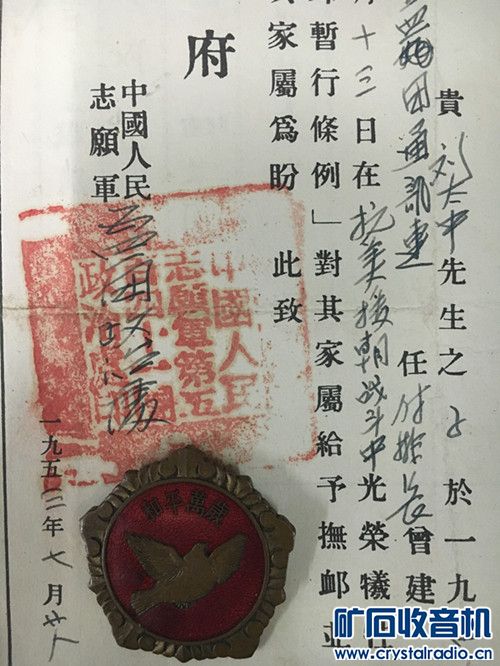 貴 刘大中先生之子於一九
团通訊連 任付排长曾建
十三日在抗美援朝战斗中光榮犧
暫行條例」對其家屬給予撫卹並
家屬爲盼 此致
府
中國人民
志願軍
一九五二年七月廿八
中國人民
志願軍第五
政治處
和平萬歲
矿石收音机
www.crystalradio.cn